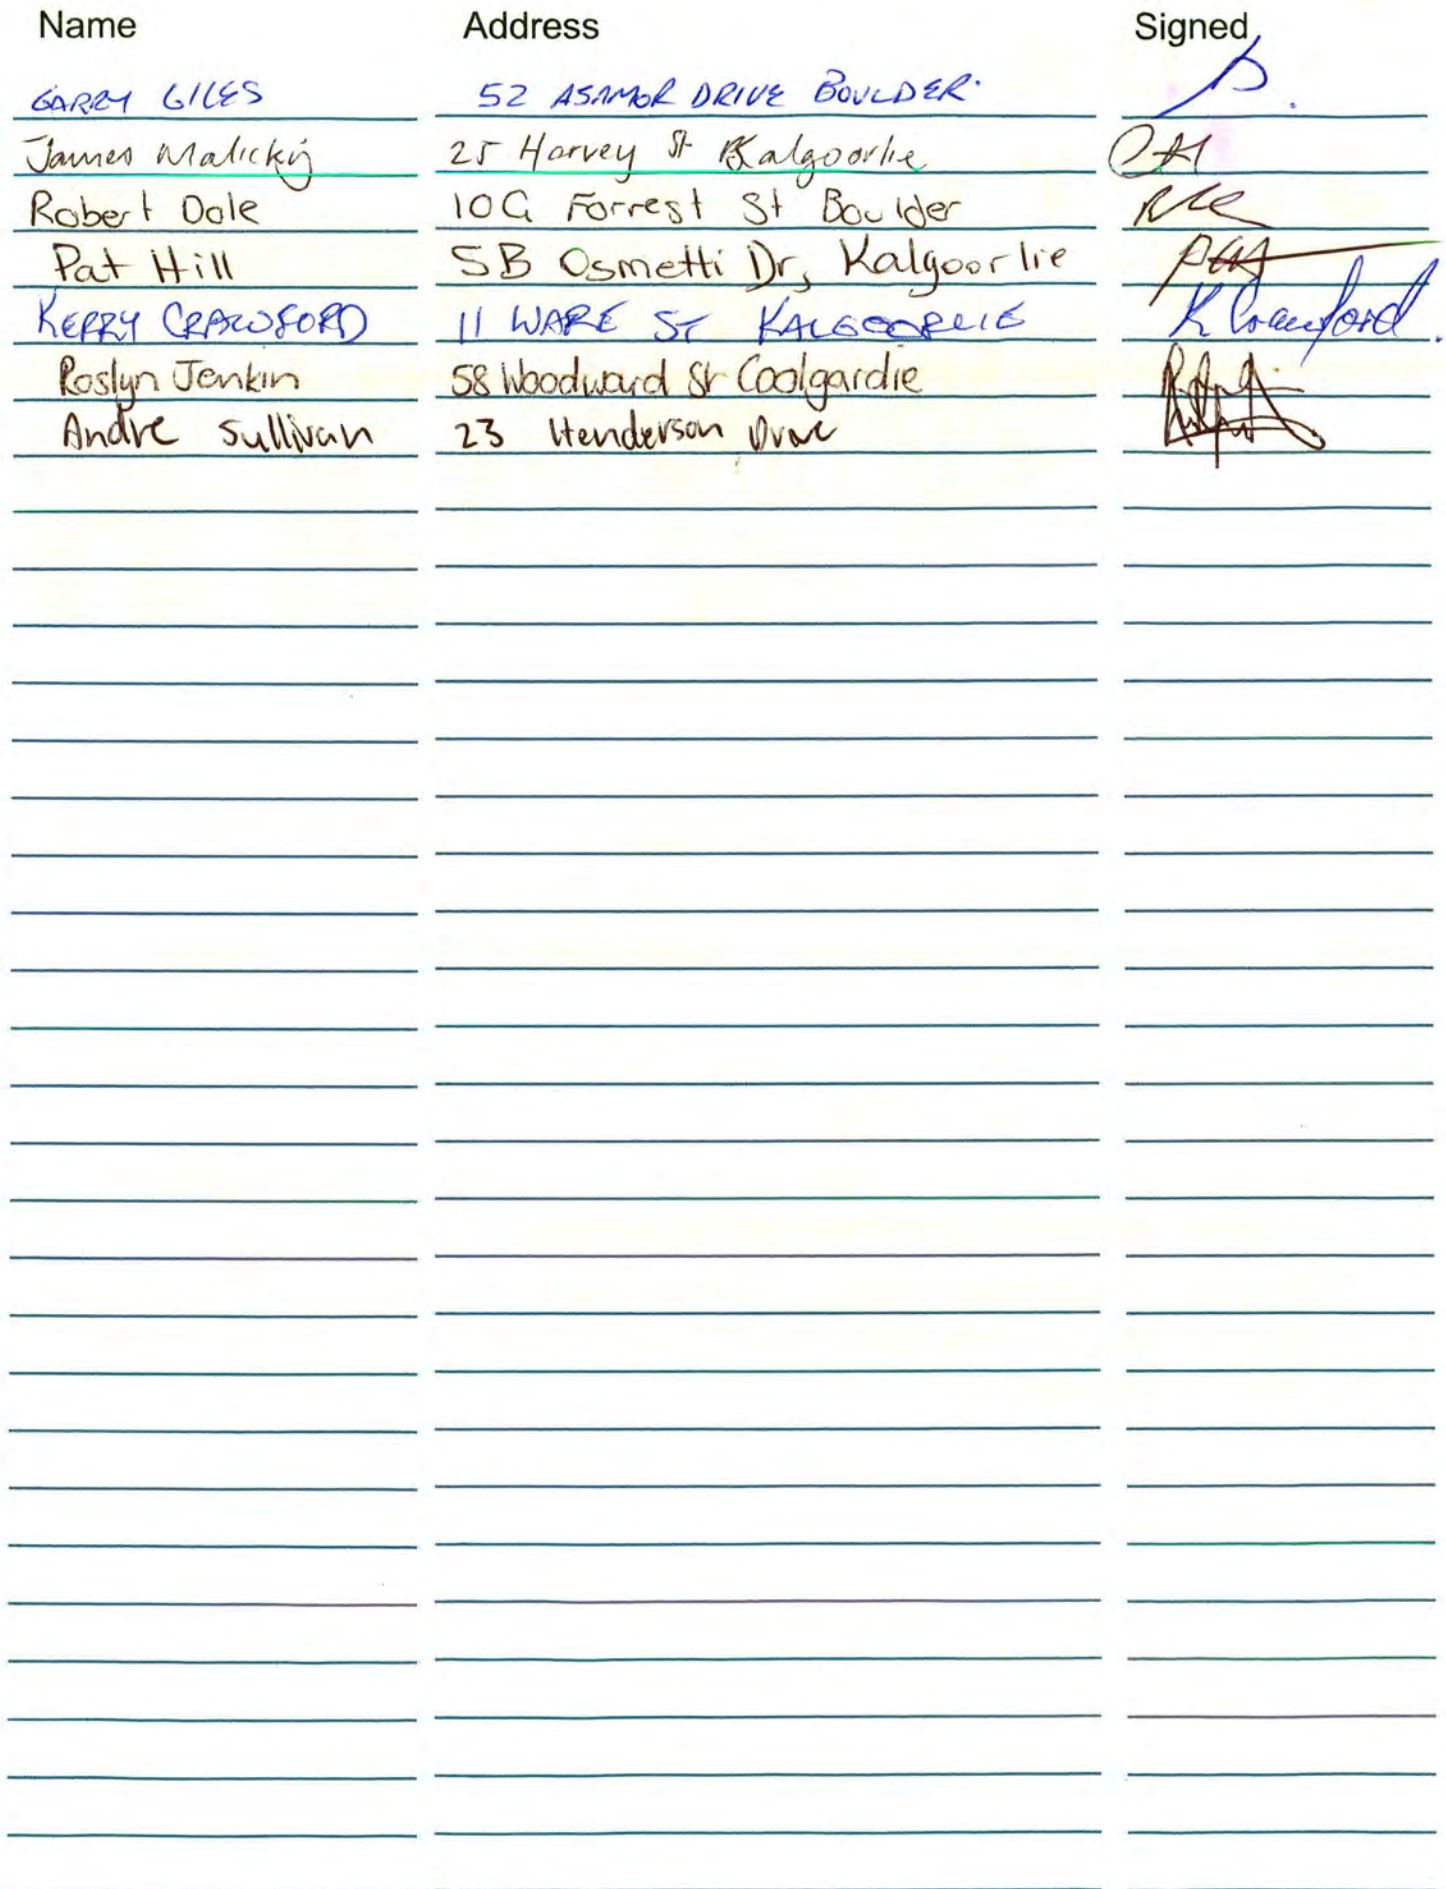 Name Address Signed
GARRY GILES 52 ASAMOR DRIVE BOULDER.
James Malickij 25 Harvey St Kalgoorlie
Robert Dale 10G Forrest St Boulder
Pat Hill 5B Osmetti Dr, Kalgoorlie
KERRY CRAWFORD 11 WARE ST KALGOORLIE K Crawford.
Roslyn Jenkin 58 Woodward St Coolgardie
Andre Sullivan 23 Henderson Drive